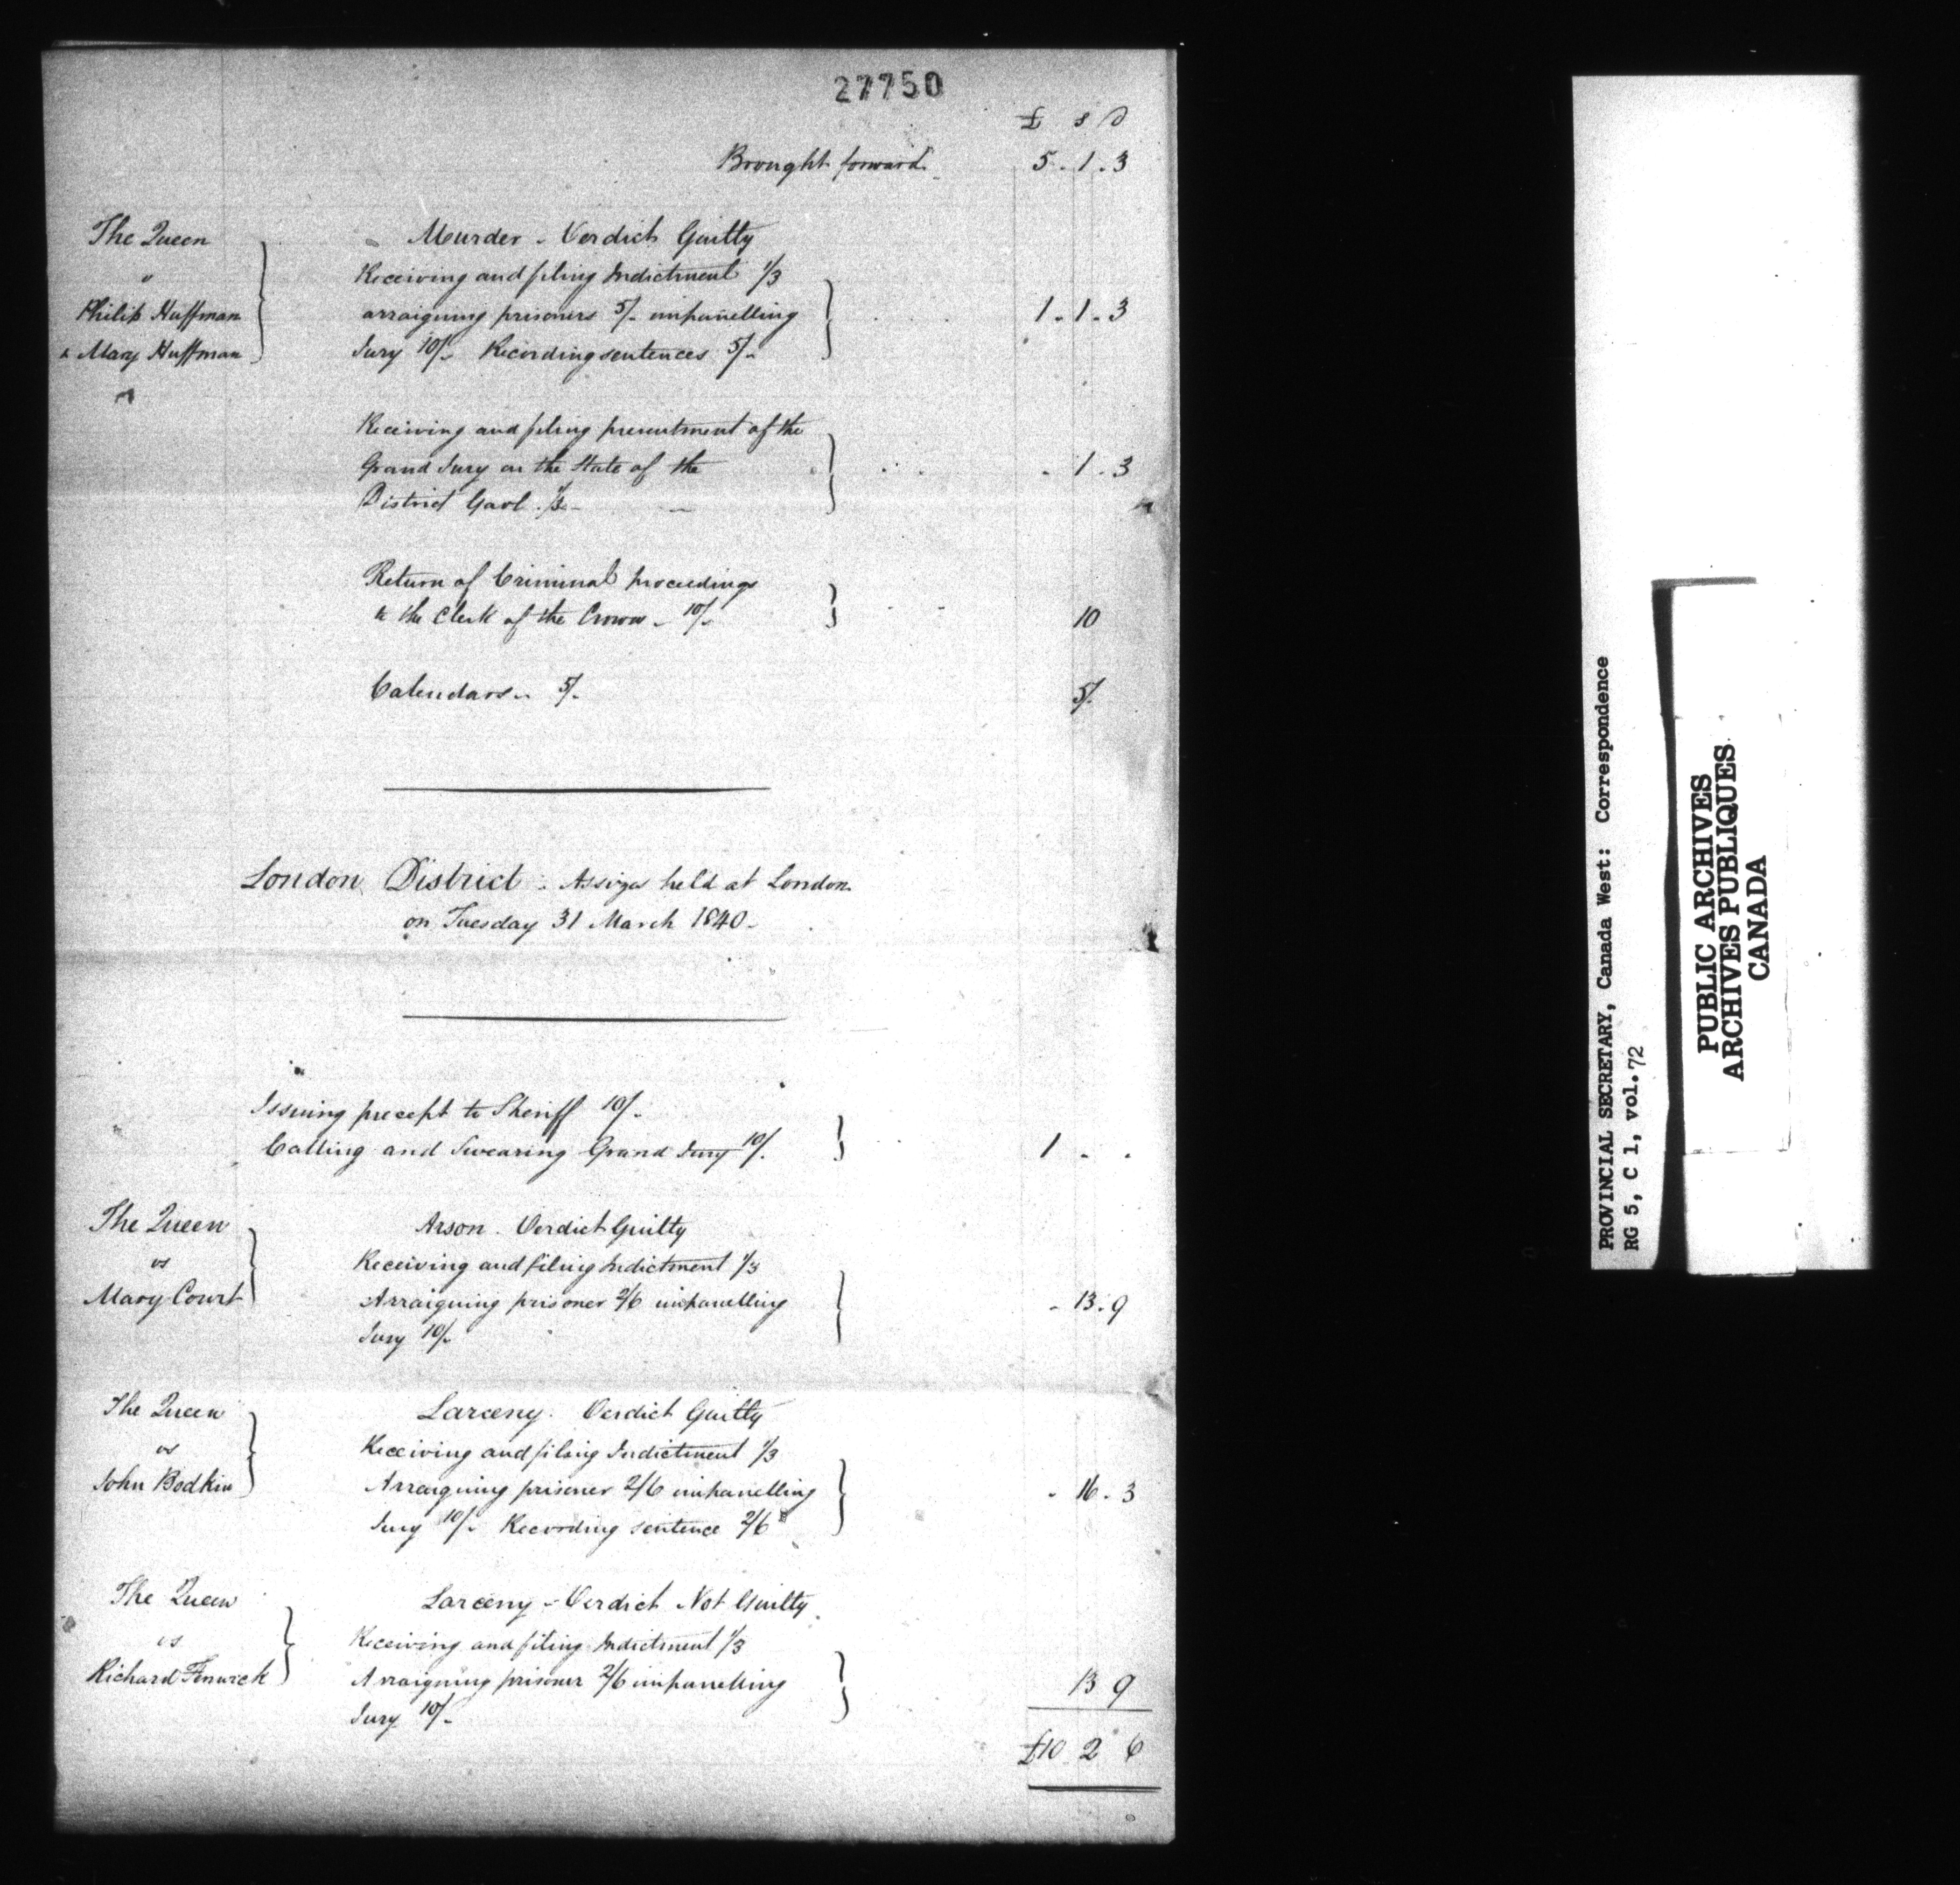 27750
£ s d
Brought forward 5 . 1 . 3
The Queen
"
Philip Huffman
& Mary Huffman
Murder - Verdict Guilty
Receiving and filing Indictment 1/3
arraigning prisoners 5/- impanelling
Jury 10/- Recording sentences 5/-
1 . 1 . 3
Receiving and filing presentment of the
Grand Jury on the State of the
District Gaol . 1/3 -
- 1 . 3
Return of Criminal proceedings
to the Clerk of the Crown - 10/-
10
Calendars - 5/-
5/-
London District . Assizes held at London
on Tuesday 31 March 1840 -
Issuing precept to Sheriff 10/-
Calling and Swearing Grand Jury 10/-
1 - .
The Queen
vs
Mary Court
Arson . Verdict Guilty
Receiving and filing Indictment 1/3
Arraigning prisoner 2/6 impanelling
Jury 10/-
- 13 . 9
The Queen
vs
John Bodkin
Larceny . Verdict Guilty
Receiving and filing Indictment 1/3
Arraigning prisoner 2/6 impanelling
Jury 10/- Recording sentence 2/6
- 16 . 3
The Queen
vs
Richard Fenwick
Larceny - Verdict Not Guilty
Receiving and filing Indictment 1/3
Arraigning prisoner 2/6 impanelling
Jury 10/-
13 9
£10 2 6
PROVINCIAL SECRETARY, Canada West: Correspondence
RG 5, C 1, vol. 72
PUBLIC ARCHIVES
ARCHIVES PUBLIQUES
CANADA